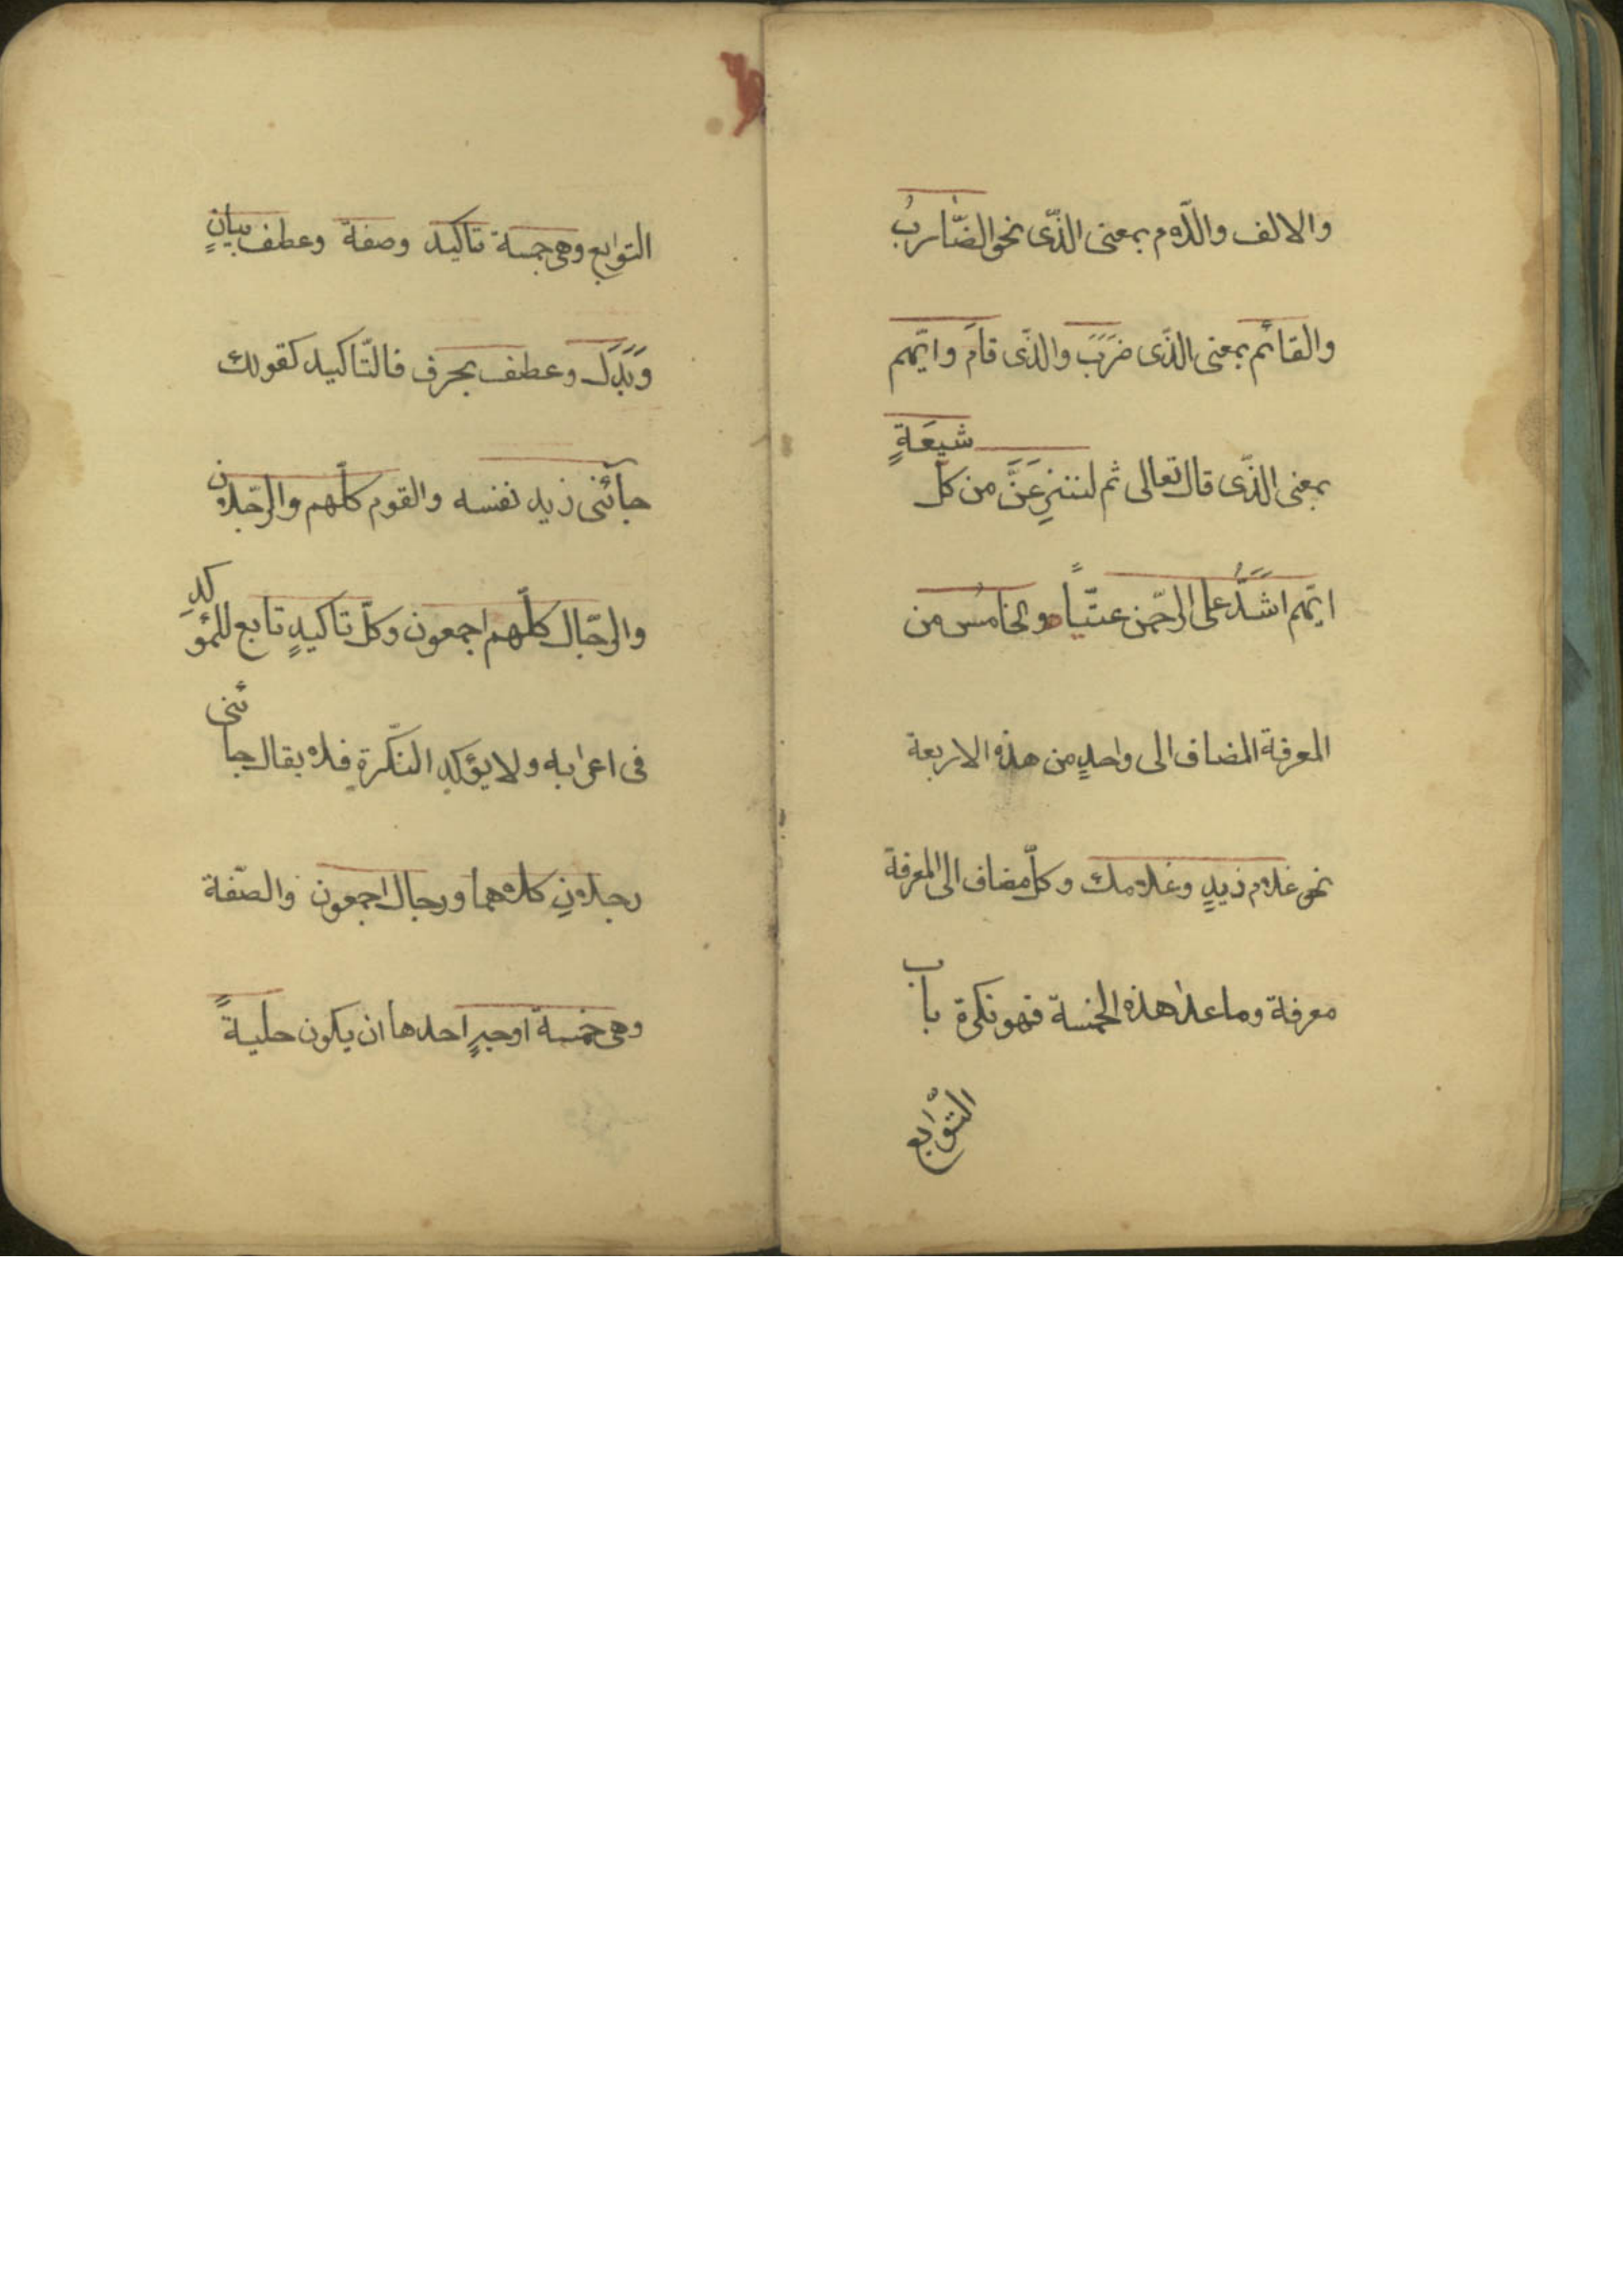 والالف واللّام بمعنى الذّى نحو الضّاربُ
والقائم بمعنى الذّى ضَرَبَ والذّى قامَ وايّهم
بمعنى الذّى قال تعالى ثم لننزِعَنَّ من كلّ شيعَةٍ
ايّهم اشَدُّ على الرحّمن عتيّاً والخامسُ من
المعرفة المضاف الى واحدٍ من هذه الاربعة
نحو غلام زيدٍ وغلامك وكلّ مضاف الى المعرفة
معرفة وما عدا هذه الخمسة فهو نكرة باب
التّوابع
التوابع وهى خمسة تاكيد وصفة وعطف بيانٍ
وَبَدَل وعطف بحرف فالتّاكيد كقولك
جآئنى زيد نفسه والقوم كلّهم والرّجلان
والرّجال كلّهم اجمعون وكلّ تاكيدٍ تابع للمؤكدِ
فى اعرابه ولا يؤكد النّكرةِ فلا يقال جائنى
رجلانِ كلاهما ورجال اجمعون والصّفة
وهى خمسة اوجهٍ احدها ان يكون حليةً